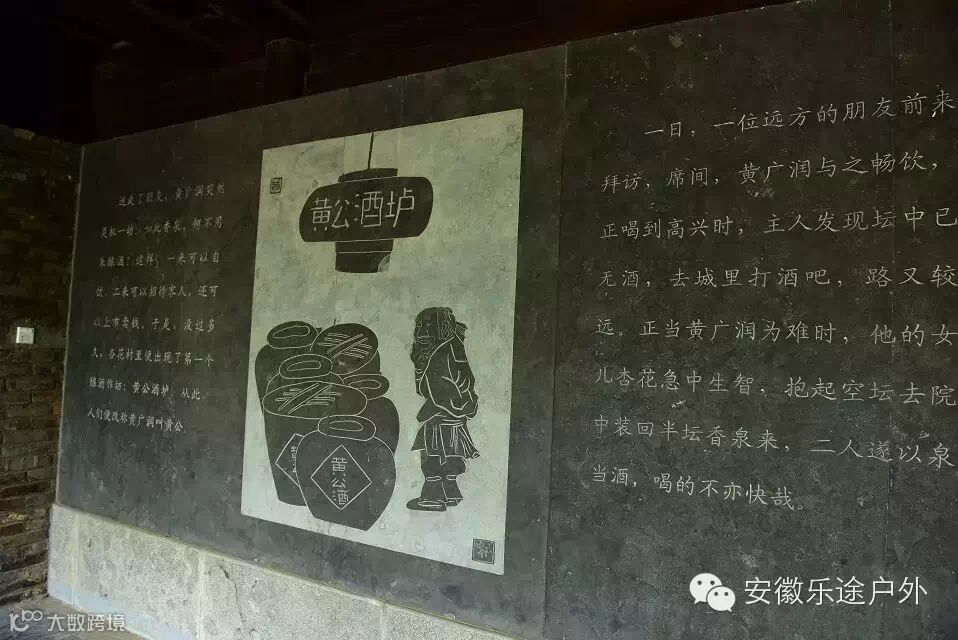 一日，一位远方的朋友前来
拜访，席间，黄广润与之畅饮，
正喝到高兴时，主人发现坛中已
无酒，去城里打酒吧，路又较
远。正当黄广润为难时，他的女
儿杏花急中生智，抱起空坛去院
中装回半坛香泉来，二人遂以泉
当酒，喝的不亦快哉。
黄公酒垆
黄公酒
送走了朋友，黄广润突然
灵机一动：如此香泉，何不用
来酿酒？这样，一来可以自
饮，二来可以招待客人，还可
以上市卖钱。于是，没过多
久，杏花村里便出现了第一个
酿酒作坊：黄公酒垆。从此，
人们便改称黄广润叫黄公。
安徽乐途户外
大数跨境